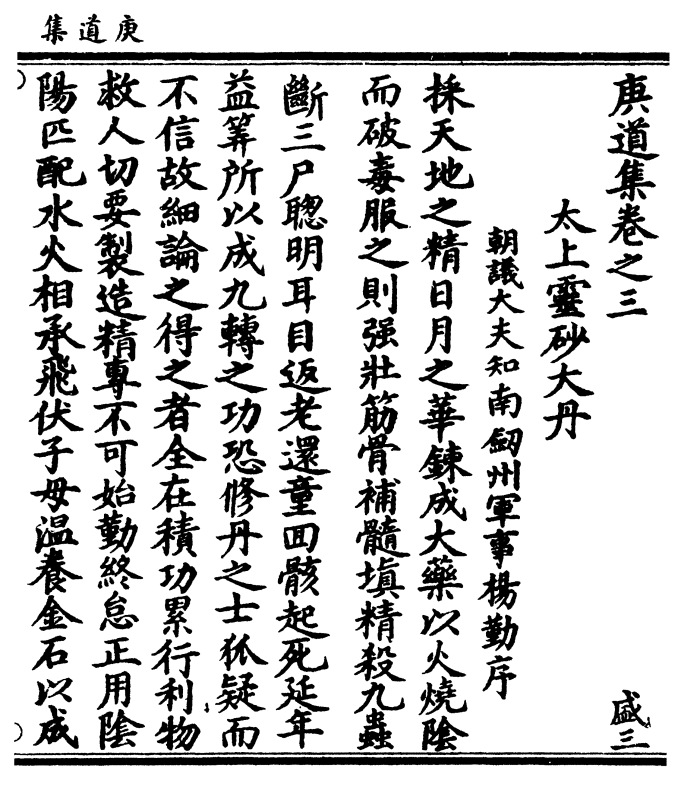 庚道集
庚道集卷之三
盛三
太上靈砂大丹
朝議大夫知南劔州軍事楊勤序
採天地之精日月之華鍊成大藥以火燒陰
而破毒服之則强壯筋骨補髓塡精殺九蟲
斷三尸聰明耳目返老還童囬骸起死延年
益筭所以成九轉之功恐修丹之士狐疑而
不信故細論之得之者全在積功累行利物
救人切要製造精專不可始勤終怠正用陰
陽匹配水火相承飛伏子母温養金石以成